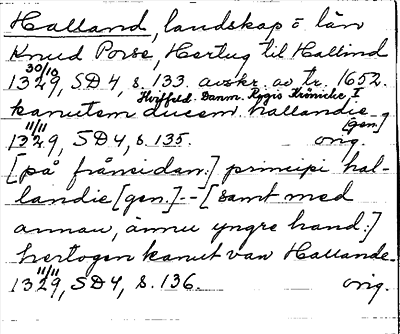 Halland, landskap o län
Knud Porse, Hertug til Hallind
30/10
1329, SD 4, s. 133. avskr. av tr. 1652.
Hvitfeld. Danm. Rigis Krönicke I
kanutem ducem hallandie
[gen]
11/11
1329, SD 4, s. 135. orig.
[på frånsidan:] principi hal-
landie [gen.] - [samt med
annan, ännu yngre hand:]
hertogen kanut van Hallande.
11/11
1329, SD 4, s. 136. orig.